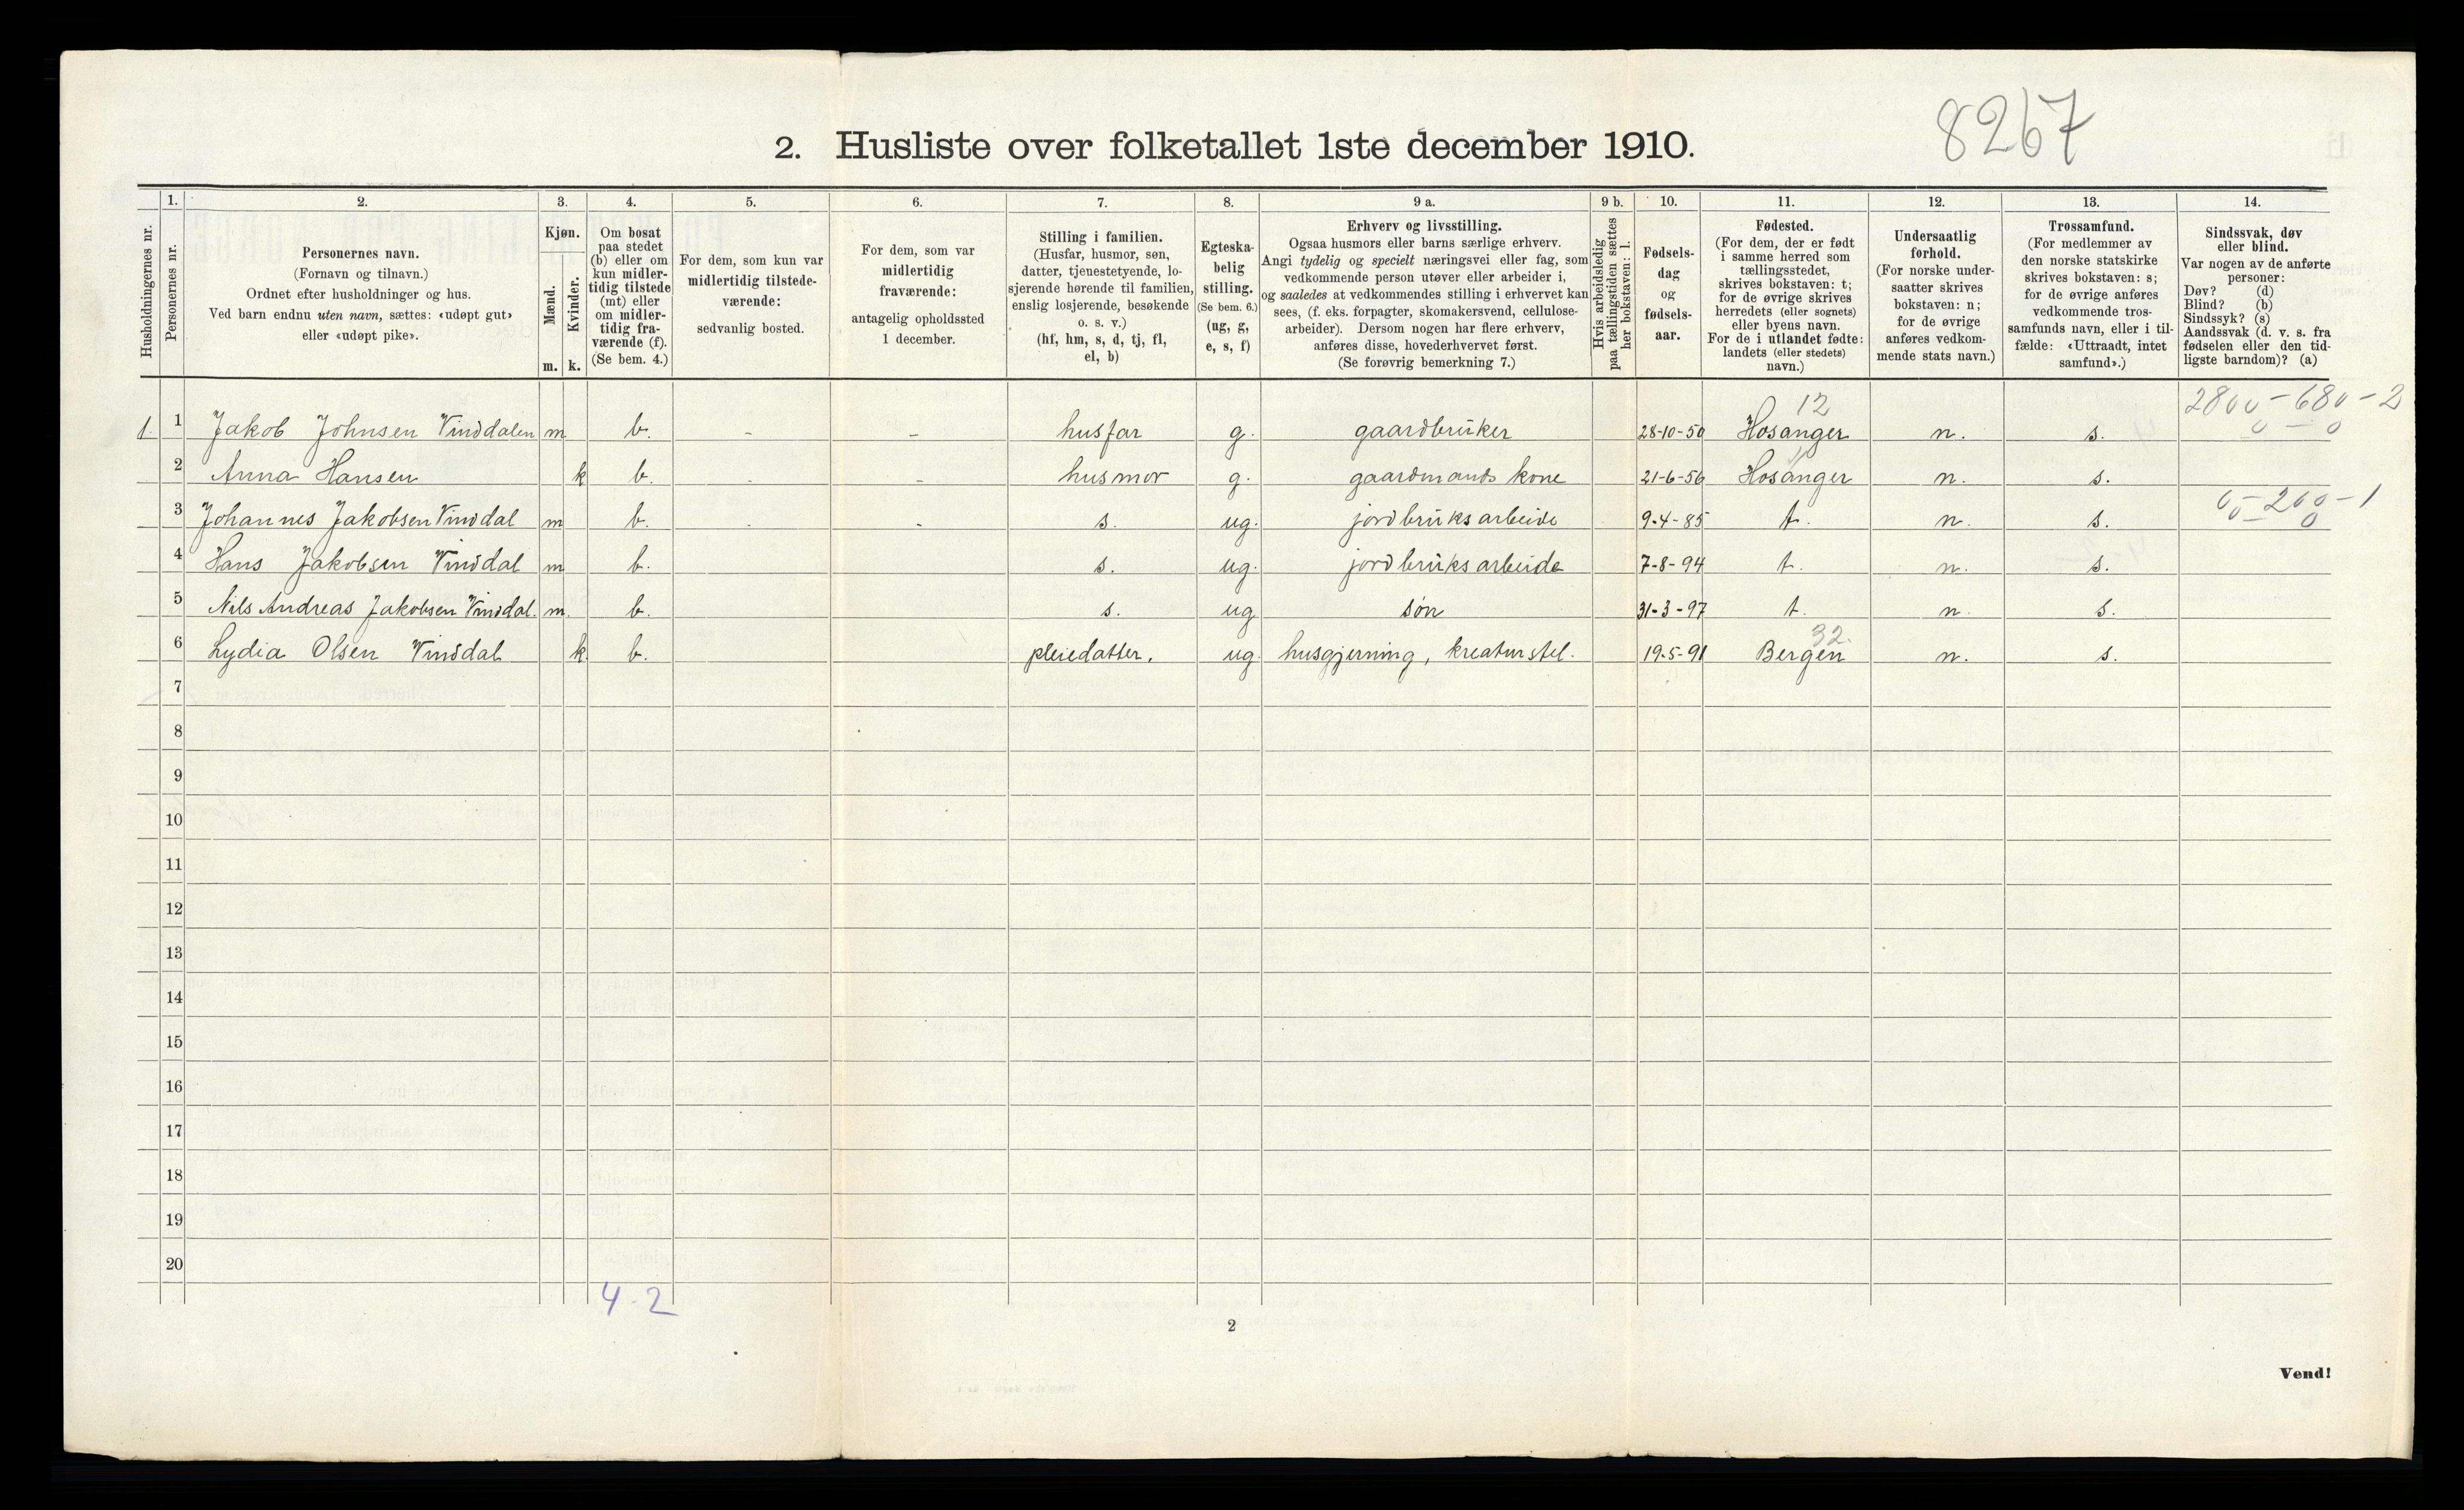 8267
2. Husliste over folketallet 1ste december 1910.
Husholdningernes nr.
1.
Personernes nr.
2.
Personernes navn.
(Fornavn og tilnavn.)
Ordnet efter husholdninger og hus.
Ved barn endnu uten navn, sættes: «udøpt gut»
eller «udøpt pike».
3.
Kjøn.
Mænd.
Kvinder.
m. k.
4.
Om bosat
paa stedet
(b) eller om
kun midler-
tidig tilstede
(mt) eller
om midler-
tidig fra-
værende (f).
(Se bem. 4.)
5.
For dem, som kun var
midlertidig tilstede-
værende:
sedvanlig bosted.
6.
For dem, som var
midlertidig
fraværende:
antagelig opholdssted
1 december.
7.
Stilling i familien.
(Husfar, husmor, søn,
datter, tjenestetyende, lo-
sjerende hørende til familien,
enslig losjerende, besøkende
o. s. v.)
(hf, hm, s, d, tj, fl,
el, b)
8.
Egteska-
belig
stilling.
(Se bem. 6.)
(ug, g,
e, s, f)
9 a.
Erhverv og livsstilling.
Ogsaa husmors eller barns særlige erhverv.
Angi tydelig og specielt næringsvei eller fag, som
vedkommende person utøver eller arbeider i,
og saaledes at vedkommendes stilling i erhvervet kan
sees, (f. eks. forpagter, skomakersvend, cellulose-
arbeider). Dersom nogen har flere erhverv,
anføres disse, hovederhvervet først.
(Se forøvrig bemerkning 7.)
9 b.
Hvis arbeidsledig
paa tællingstiden sættes
her bokstaven: l.
10.
Fødsels-
dag
og
fødsels-
aar.
11.
Fødested.
(For dem, der er født
i samme herred som
tællingsstedet,
skrives bokstaven: t;
for de øvrige skrives
herredets (eller sognets)
eller byens navn.
For de i utlandet fødte:
landets (eller stedets)
navn.)
12.
Undersaatlig
forhold.
(For norske under-
saatter skrives
bokstaven: n;
for de øvrige
anføres vedkom-
mende stats navn.)
13.
Trossamfund.
(For medlemmer av
den norske statskirke
skrives bokstaven: s;
for de øvrige anføres
vedkommende tros-
samfunds navn, eller i til-
fælde: «Uttraadt, intet
samfund».)
14.
Sindssvak, døv
eller blind.
Var nogen av de anførte
personer:
Døv? (d)
Blind? (b)
Sindssyk? (s)
Aandssvak (d. v. s. fra
fødselen eller den tid-
ligste barndom)? (a)
12 2800 - 680 - 2
0 - 0
1. 1 Jakob Johnsen Vinddalen m b. - - husfar g. gaardbruker 28-10-50 Hosanger n. s.
2 Anna Hansen k b. - - husmor g. gaardmands kone 21-6-56 Hosanger n. s.
3 Johannes Jakobsen Vinddal m b. - - s. ug. jordbruksarbeide 9-4-85 t. n. s.
4 Hans Jakobsen Vinddal m b. s. ug. jordbruksarbeide 7-8-94 t. n. s.
5 Nils Andreas Jakobsen Vinddal. m. b. s. ug søn 31-3-97 t. n. s.
32.
6 Lydia Olsen Vinddal k b. pleiedatter. ug. husgjerning, kreaturstel. 19-5-91 Bergen n. s.
7
8
9
10
11
12
13
14
15
16
17
18
19
20
4-2
2
Vend!